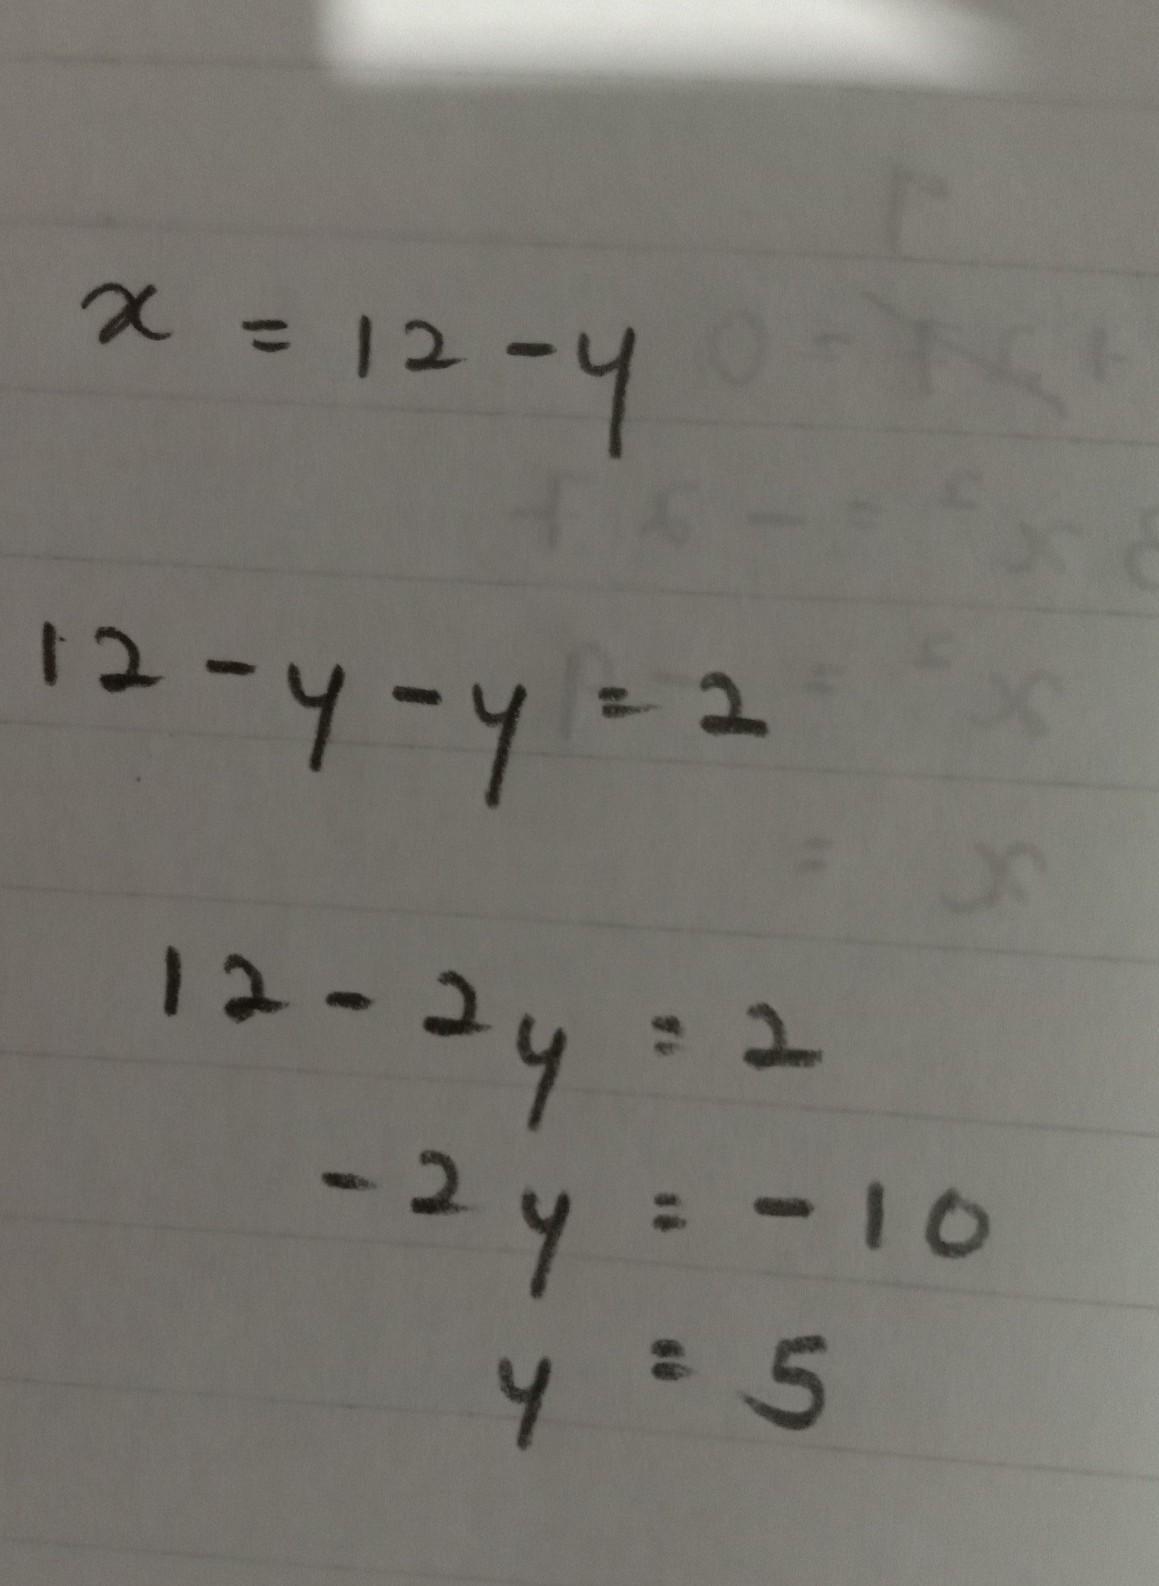 x = 12 - y
12 - y - y = 2
12 - 2y = 2
- 2y = - 10
y = 5